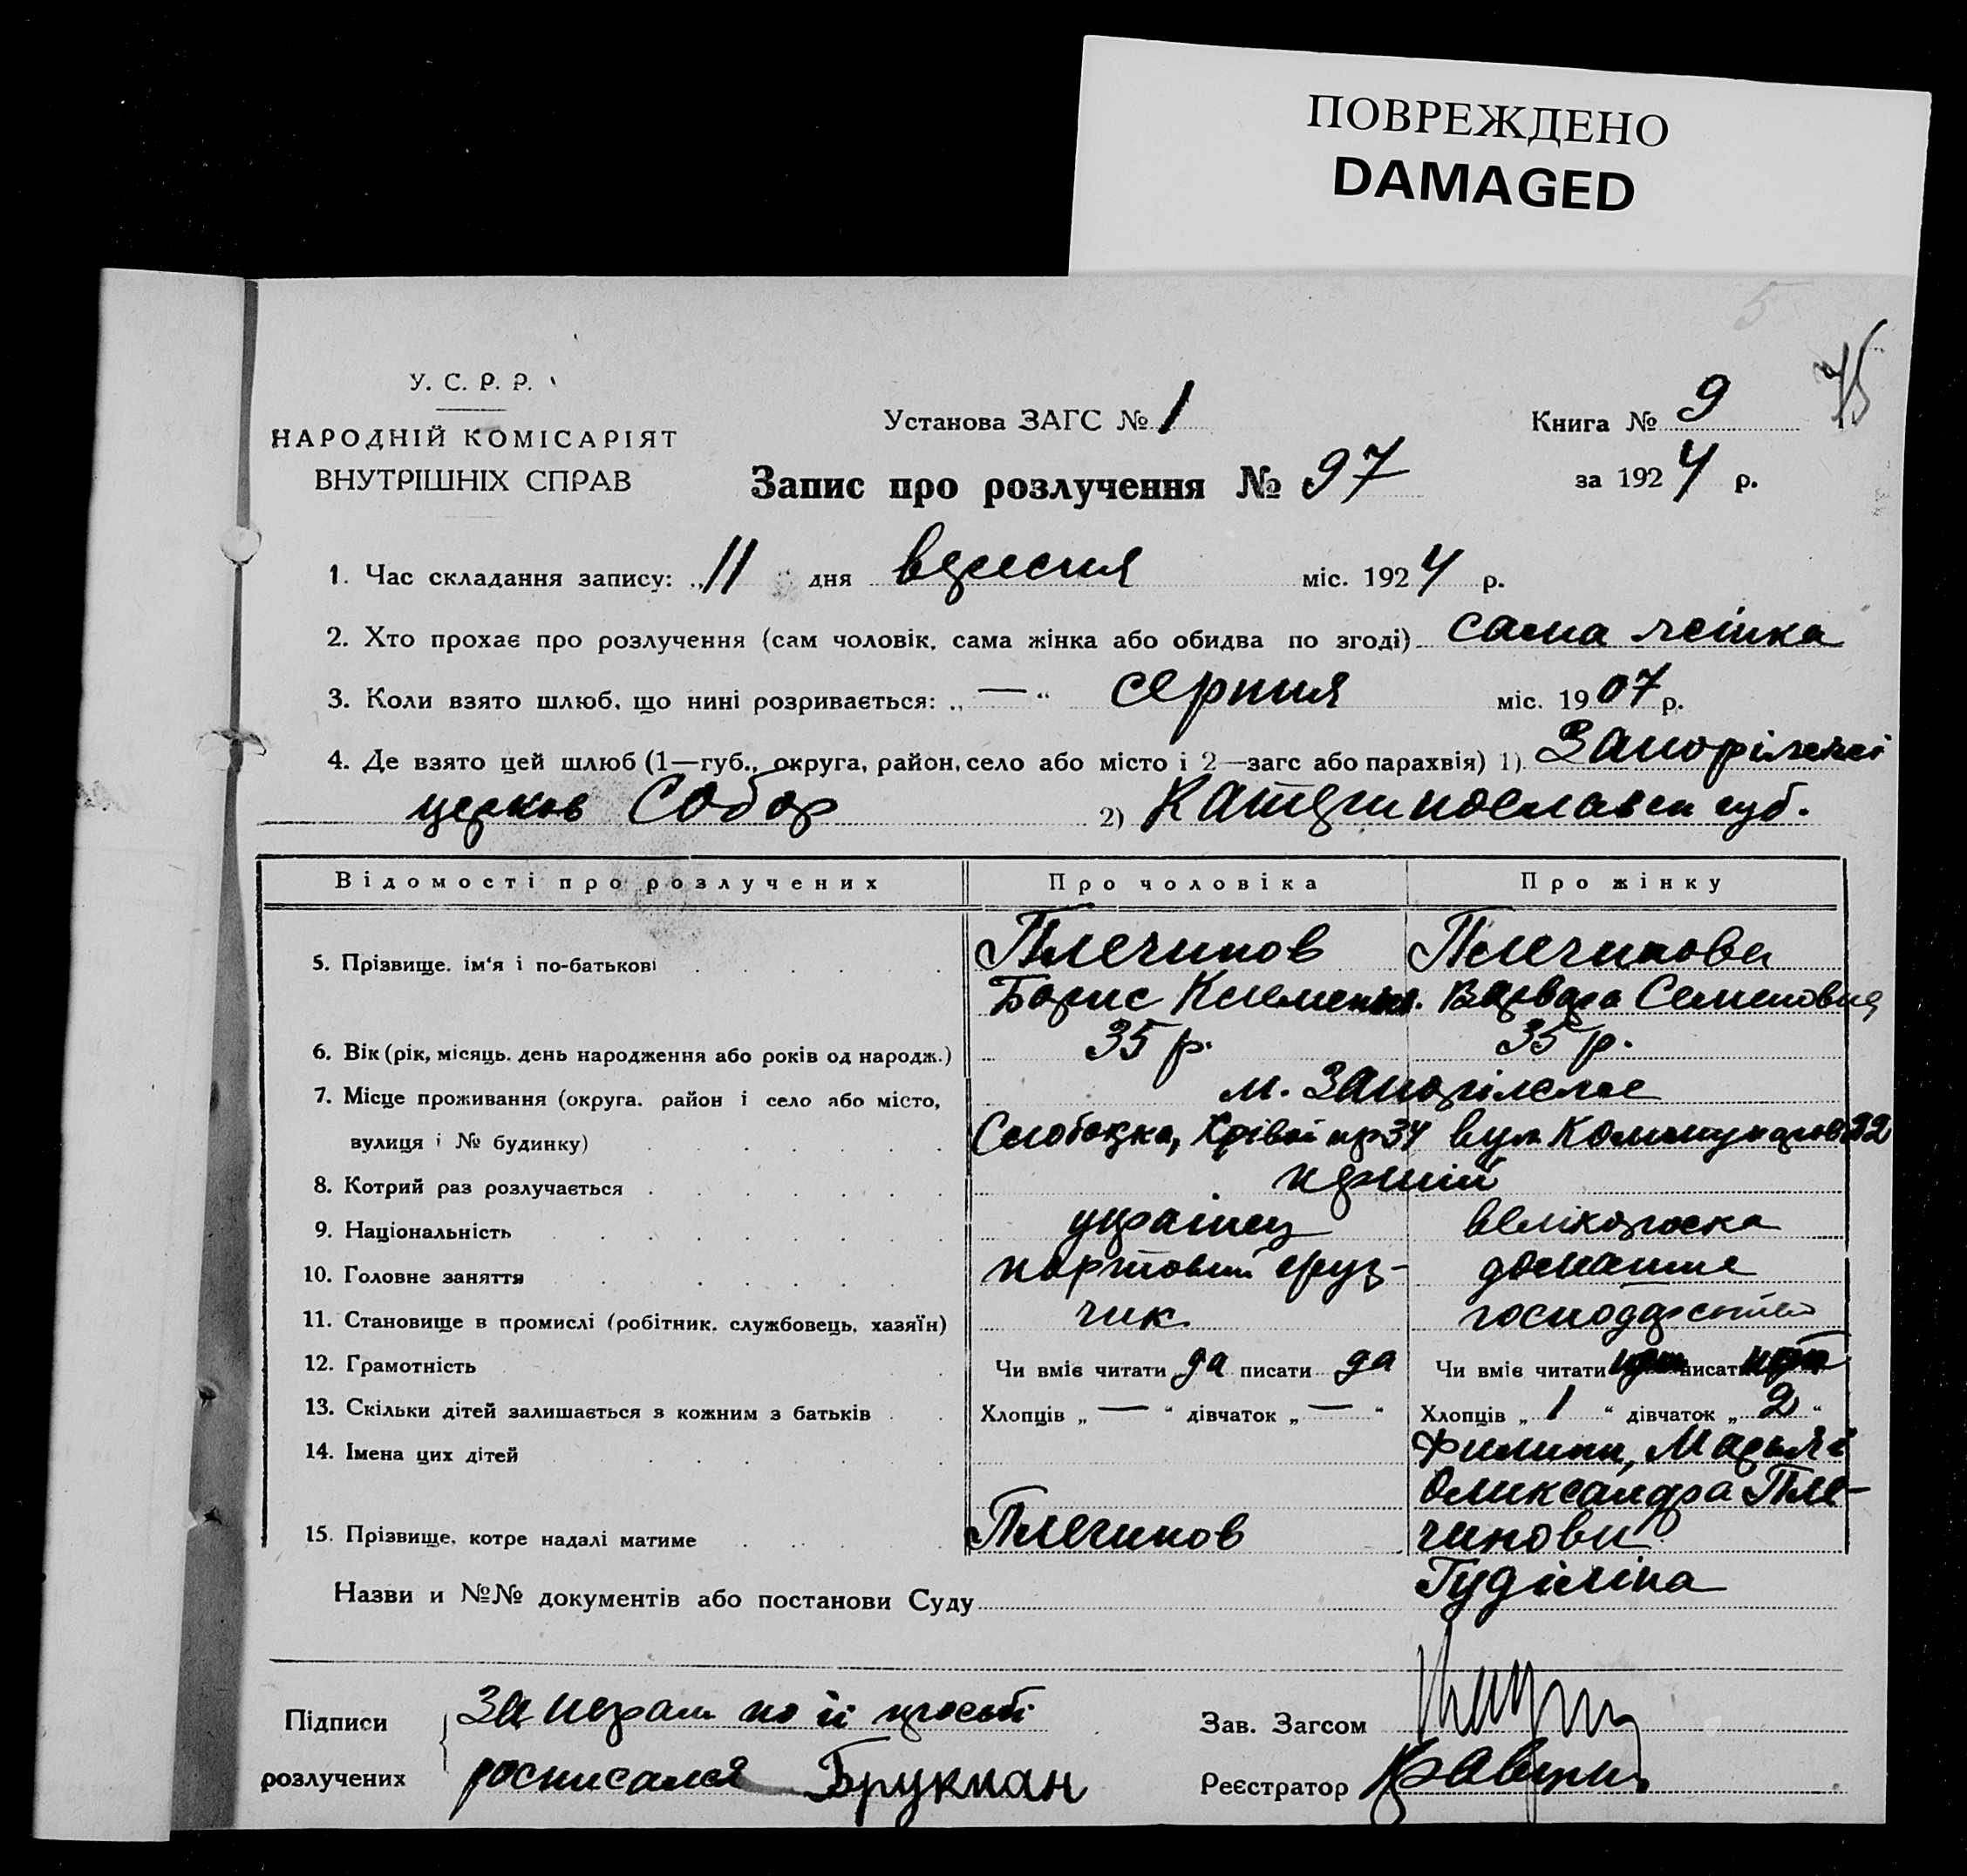 ПОВРЕЖДЕНО
DAMAGED
5
У. С. Р. Р.
НАРОДНІЙ КОМІСАРІЯТ
ВНУТРІШНІХ СПРАВ
Установа ЗАГС № 1
Книга № 9
75
Запис про розлучення № 97
за 1924 р.
1. Час складання запису: „11" дня вересня міс. 1924 р.
2. Хто прохає про розлучення (сам чоловік, сама жінка або обидва по згоді) сама жінка
3. Коли взято шлюб, що нині розривається: „—" серпня міс. 1907 р.
4. Де взято цей шлюб (1—губ., округа, район, село або місто і 2—загс або парахвія) 1) Запоріжжі
церков Собор 2) Катеринославск губ.
Відомості про розлучених Про чоловіка Про жінку
5. Прізвище, ім'я і по-батькові Плечинов Плечинова
Борис Климентів. Варвара Семеновна
6. Вік (рік, місяць, день народження або років од народж.) 35 р. 35 р.
7. Місце проживання (округа, район і село або місто, м. Запоріжжє
вулиця і № будинку) Слободка, Крівой пр 34 вул Коммунаров 22
8. Котрий раз розлучається перший
9. Національність українец велікороска
10. Головне заняття портовий груз- домашнє
11. Становище в промислі (робітник, службовець, хазяїн) чик господарство
12. Грамотність Чи вміє читати да писати да Чи вміє читати писати
13. Скільки дітей залишається з кожним з батьків Хлопців „—" дівчаток „—" Хлопців „1" дівчаток „2"
14. Імена цих дітей Филипп, Марья і
Олександра Пле-
15. Прізвище, котре надалі матиме Плечинов чинови
Назви и №№ документів або постанови Суду Гуділіна
Підписи За неграм по її прозьбі
розлучених росписался Брукман
Зав. Загсом
Реєстратор